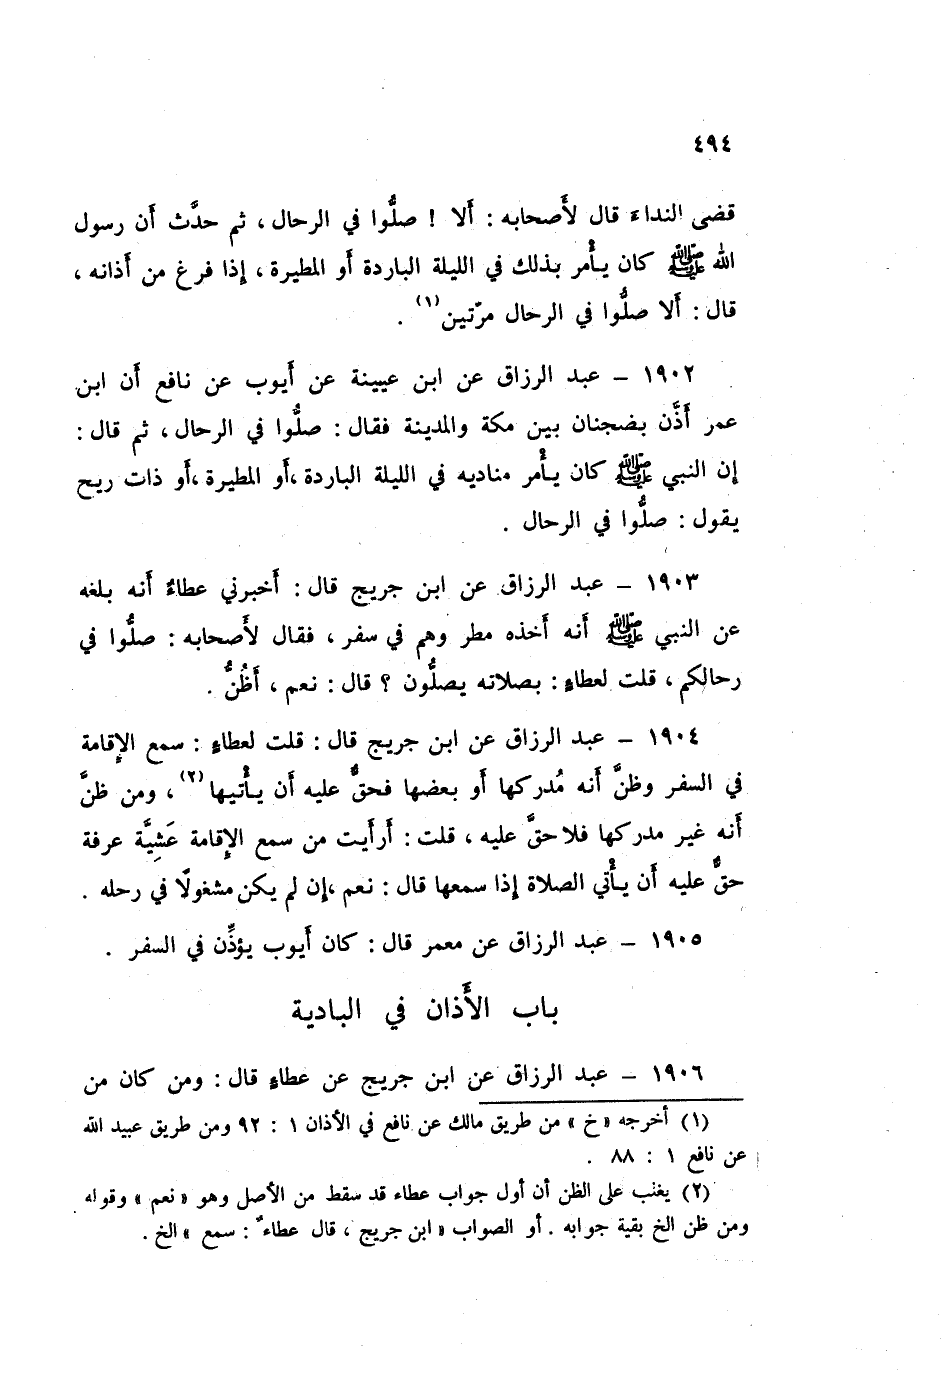 ٤٩٤
قضى النداء قال لأَصحابه : أَلا ! صلُّوا في الرحال ، ثم حدَّث أَن رسول
الله ﷺ كان يأْمر بذلك في الليلة الباردة أَو المطيرة ، إذا فرغ من أَذانه ،
قال : أَلا صلُّوا في الرحال مرّتين (١) .
١٩٠٢ – عبد الرزاق عن ابن عيينة عن أَيوب عن نافع أَن ابن
عمر أَذَّن بضجنان بين مكة والمدينة فقال : صلُّوا في الرحال ، ثم قال :
إن النبي ﷺ كان يأْمر مناديه في الليلة الباردة ،أَو المطيرة ،أَو ذات ريح
يقول : صلُّوا في الرحال .
١٩٠٣ – عبد الرزاق عن ابن جريج قال : أَخبرني عطاءٌ أَنه بلغه
عن النبي ﷺ أَنه أَخذه مطر وهم في سفر ، فقال لأَصحابه : صلُّوا في
رحالكم ، قلت لعطاءٍ : بصلاته يصلُّون ؟ قال : نعم ، أَظُنُّ .
١٩٠٤ – عبد الرزاق عن ابن جريج قال : قلت لعطاءٍ : سمع الإِقامة
في السفر وظنَّ أَنه مُدركها أَو بعضها فحقٌّ عليه أَن يأْتيها (٢) ، ومن ظنَّ
أَنه غير مدركها فلا حقَّ عليه ، قلت : أَرأَيت من سمع الإِقامة عَشِيَّة عرفة
حقٌّ عليه أَن يأْتي الصلاة إذا سمعها قال : نعم ،إن لم يكن مشغولًا في رحله .
١٩٠٥ – عبد الرزاق عن معمر قال : كان أَيوب يؤذِّن في السفر .
باب الأَذان في البادية
١٩٠٦ – عبد الرزاق عن ابن جريج عن عطاءٍ قال : ومن كان من
(١) أخرجه «خ» من طريق مالك عن نافع في الأذان ١ : ٩٢ ومن طريق عبيد الله
عن نافع ١ : ٨٨ .
(٢) يغلب على الظن أن أول جواب عطاء قد سقط من الأصل وهو «نعم» وقوله
ومن ظن الخ بقية جوابه . أو الصواب «ابن جريج ، قال عطاءٌ : سمع» الخ .